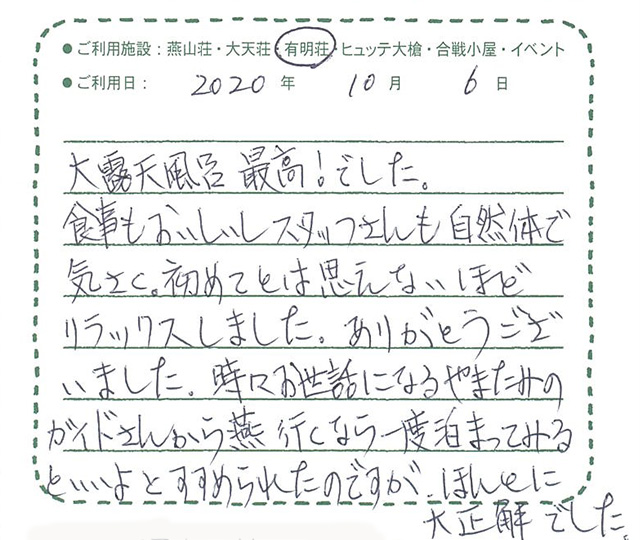 ●ご利用施設：燕山荘・大天荘・有明荘・ヒュッテ大槍・合戦小屋・イベント
●ご利用日： 2020 年 10 月 6 日
大露天風呂 最高！でした。
食事もおいしいしスタッフさんも自然体で
気さく。初めてとは思えないほど
リラックスしました。ありがとうござ
いました。時々お世話になるやまたみの
ガイドさんから燕行くなら一度泊まってみる
といいよとすすめられたのですが、ほんとに
大正解でした。